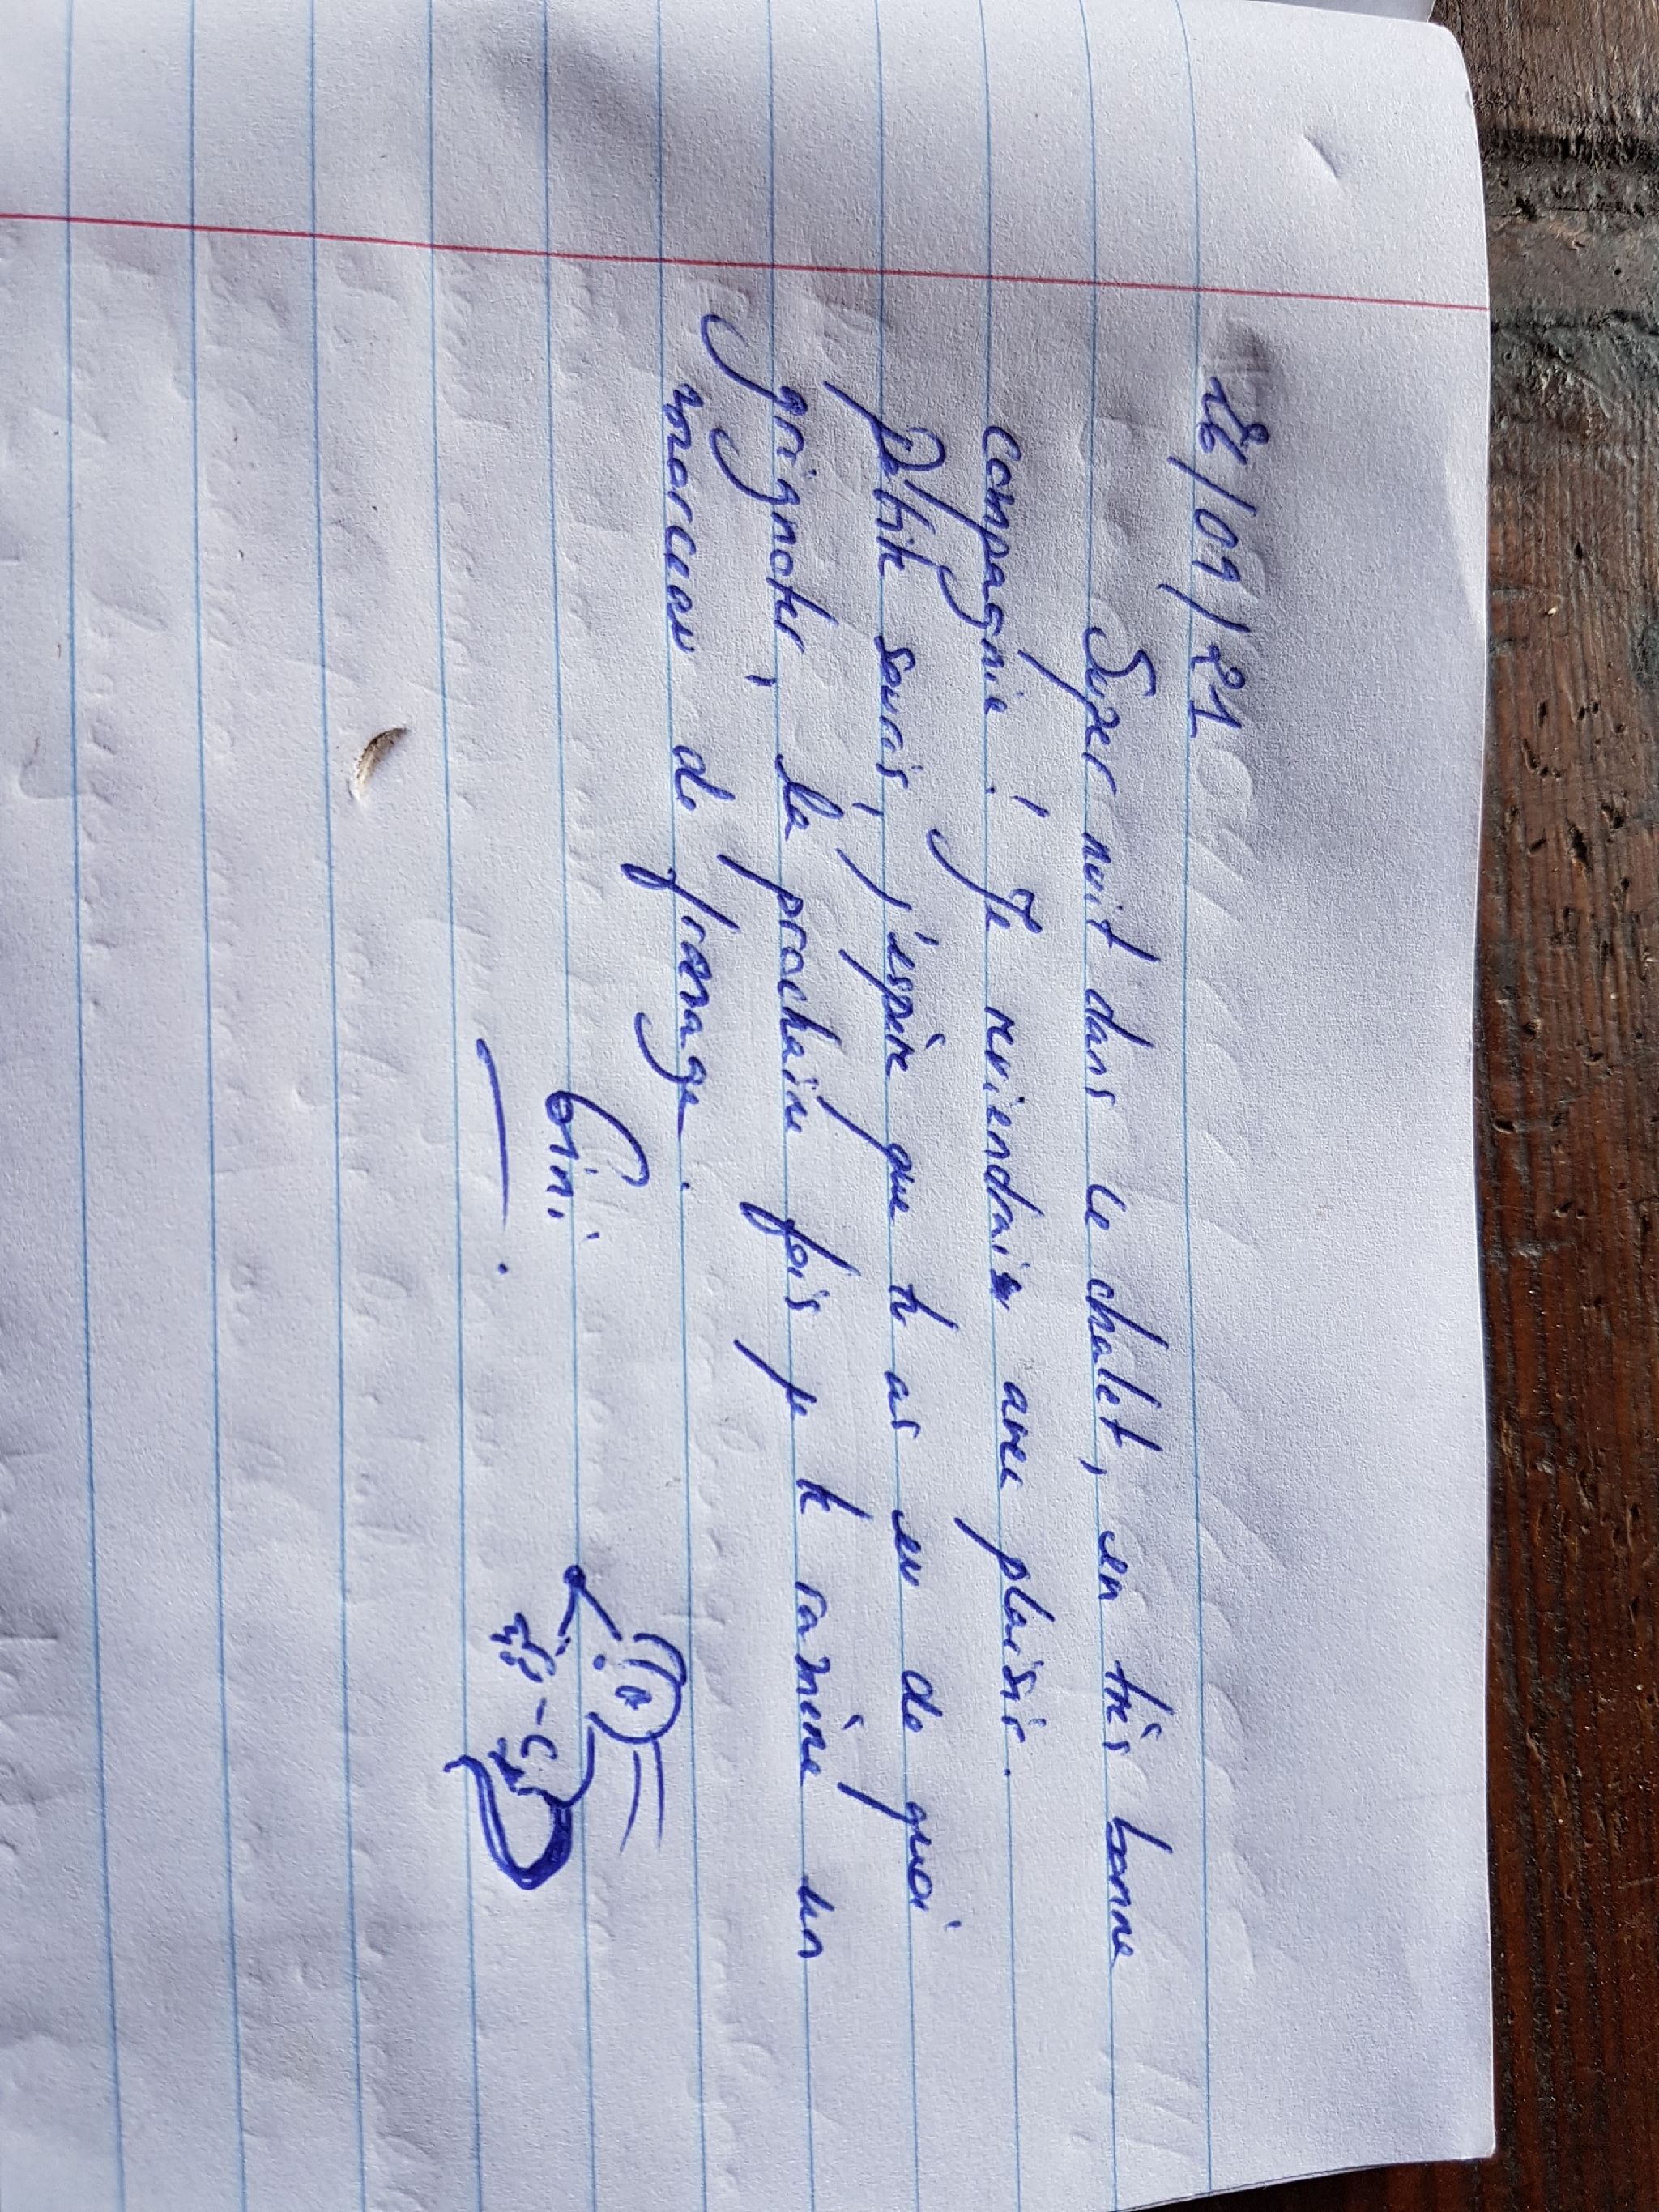 26/09/21
Super nuit dans le chalet, en très bonne
compagnie ! Je reviendrai avec plaisir.
Petite souris, j'espère que tu as eu de quoi
grignoter, la prochaine fois je te ramène un
morceau de fromage.